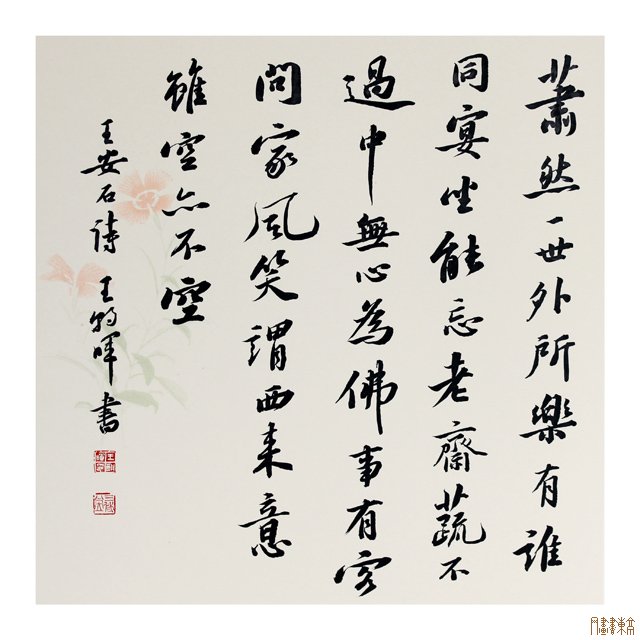 蕭然一世外所樂有誰
同宴坐能忘老齋蔬不
過中無心為佛事有客
問家風笑謂西來意
雖空亦不空
王安石詩 王暉書